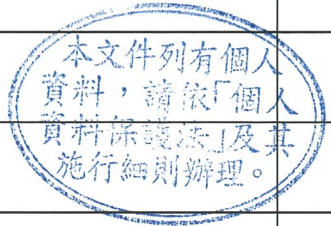 本文件列有個人
資料，請依「個人
資料保護法」及其
施行細則辦理。